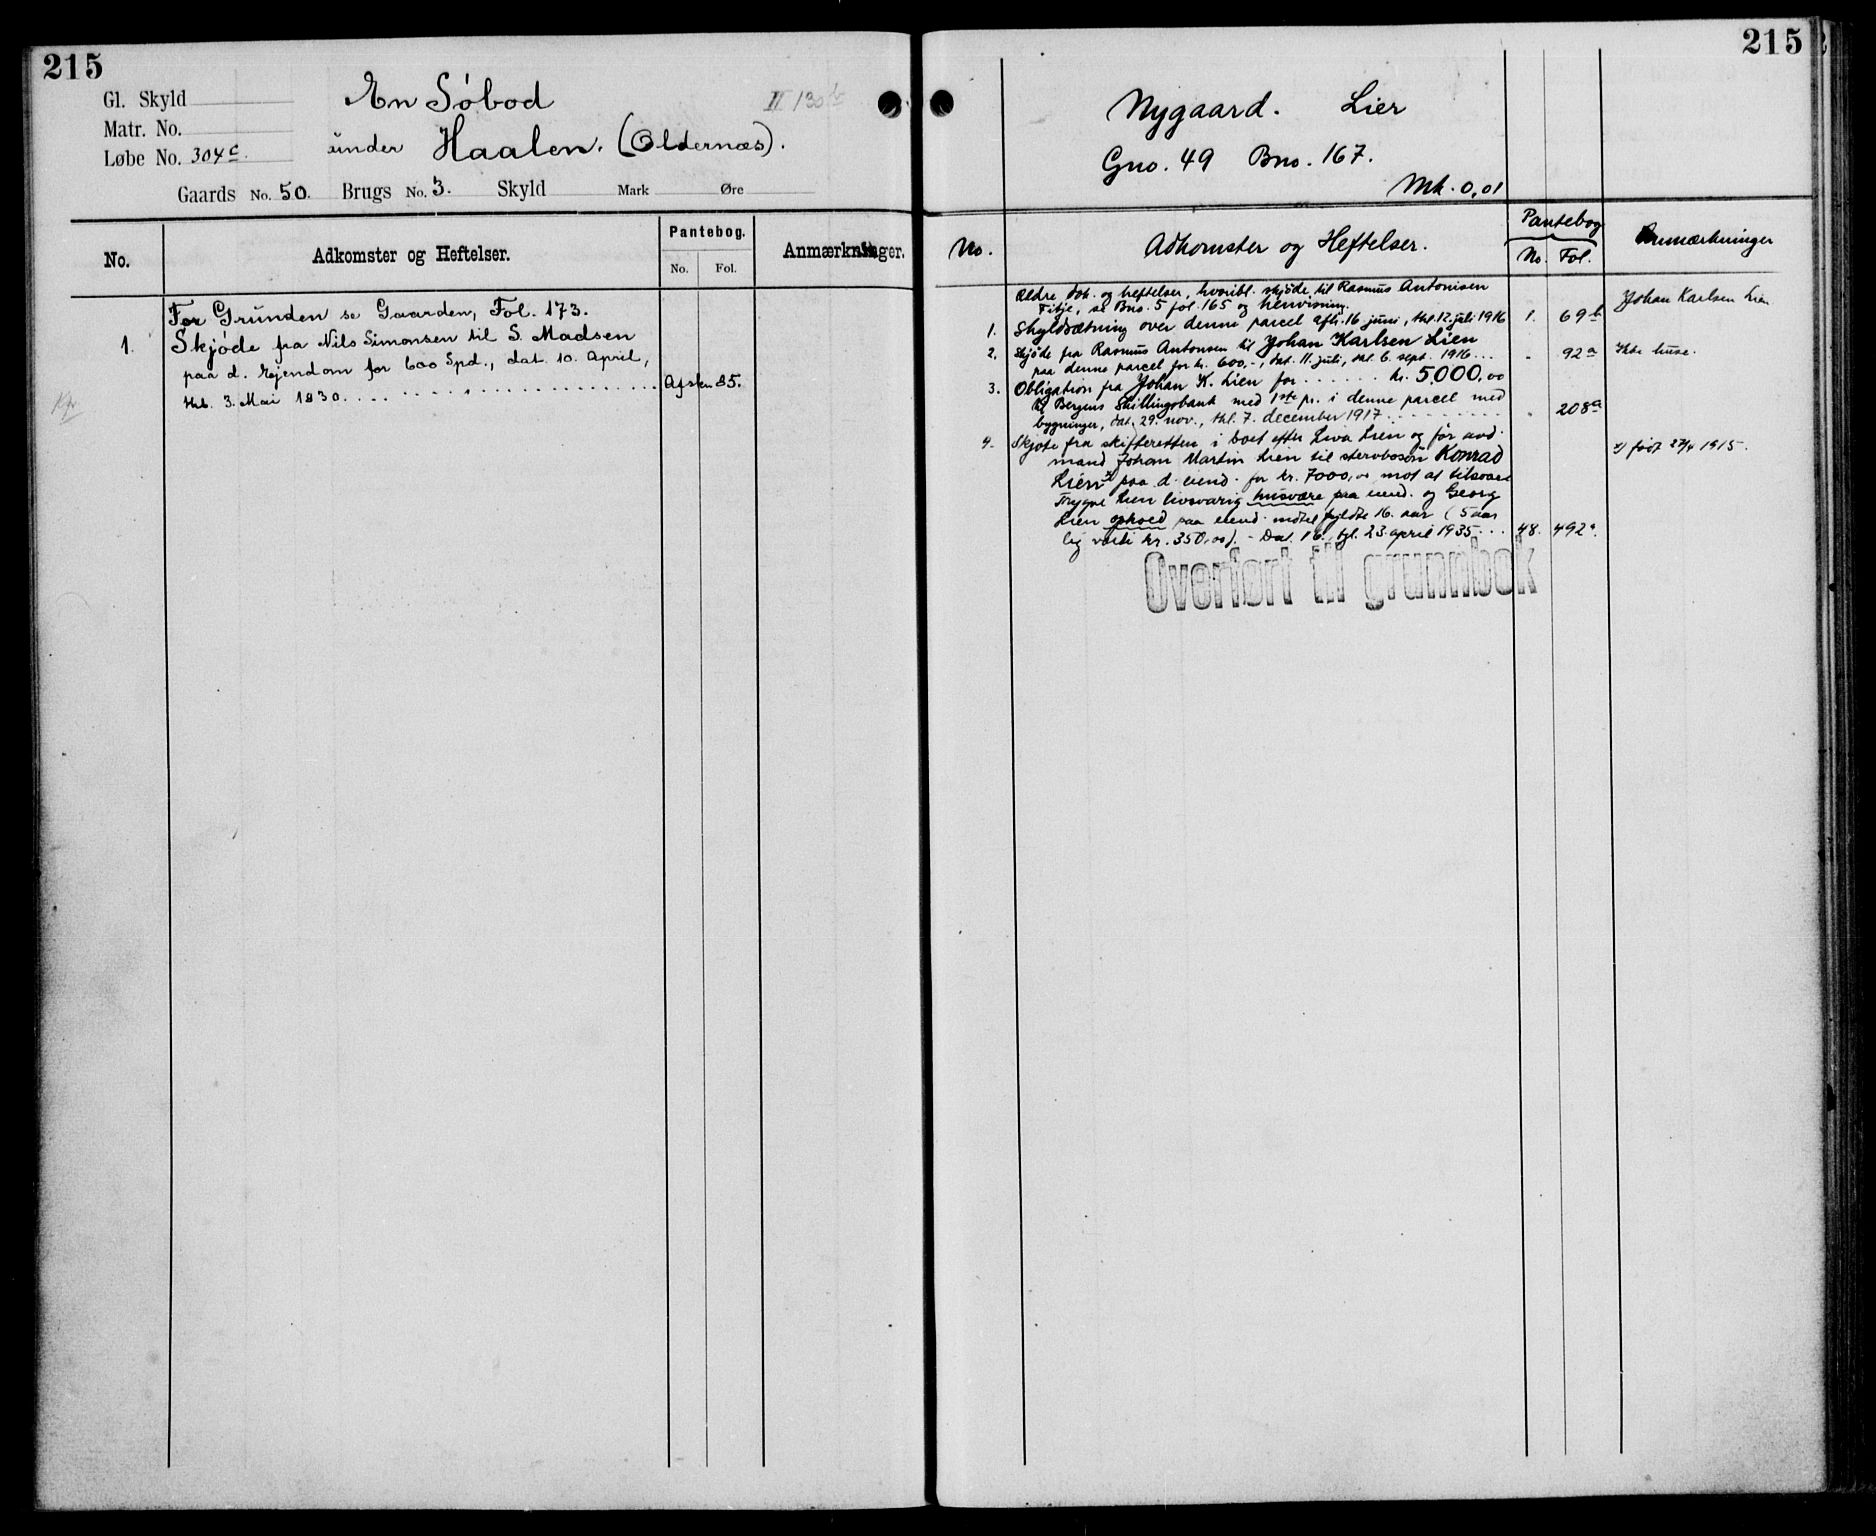 215
Gl. Skyld
Matr. No.
Løbe No. 304c.
En Søbod
II 130b
under Haalen. (Oldernæs).
Gaards No. 50. Brugs No. 3. Skyld Mark Øre
No. Adkomster og Heftelser. Pantebog. Anmærkninger.
No. Fol.
For Grunden se Gaarden, Fol. 173.
1. Skjøde fra Nils Simonsen til S. Madsen
paa d. Ejendom for 600 Spd., dat. 10. April,
thb. 3. Mai 1830. Afskr. 85.
215
Nygaard. Lier
Gno. 49 Bno. 167.
Mk. 0,01
No. Adkomster og Heftelser. Pantebog Anmærkninger
No. Fol.
Ældre dok. og heftelser, hvoribl. skjøde til Rasmus Antonisen
Fitje, se Bno. 5 fol. 165 og henvisning. Johan Karlsen Lien
1. Skyldsætning over denne parcel afh. 16 juni, thl. 12. juli 1916 1. 69b
2. Skjøde fra Rasmus Antonsen til Johan Karlsen Lien
paa denne parcel for kr. 600,-, dat. 11. juli, thl. 6. sept. 1916... " 92a Ikke huse.
3. Obligation fra Johan K. Lien for ...... kr. 5000,00
til Bergens Skillingsbank med 1ste pr. i denne parcel med
bygninger, dat. 29. nov., thl. 7. december 1917 .......... " 208a
4. Skjøte fra skifteretten i boet efter Liva Lien og før avd.
mand Johan Martin Lien til stervbosøn Konrad x) født 27/4 1915.
Lien x) paa d. eiend. for kr. 7000,00 mot at tilsvare
Trygve Lien livsvarig husvære paa eiend. og Georg
Lien ophold paa eiend. indtil fyldte 16. aar (5 aar
lig verdi kr. 350,00). - Dat. 16., tgl. 23. april 1935... 48. 492a.
Overført til grunnbok